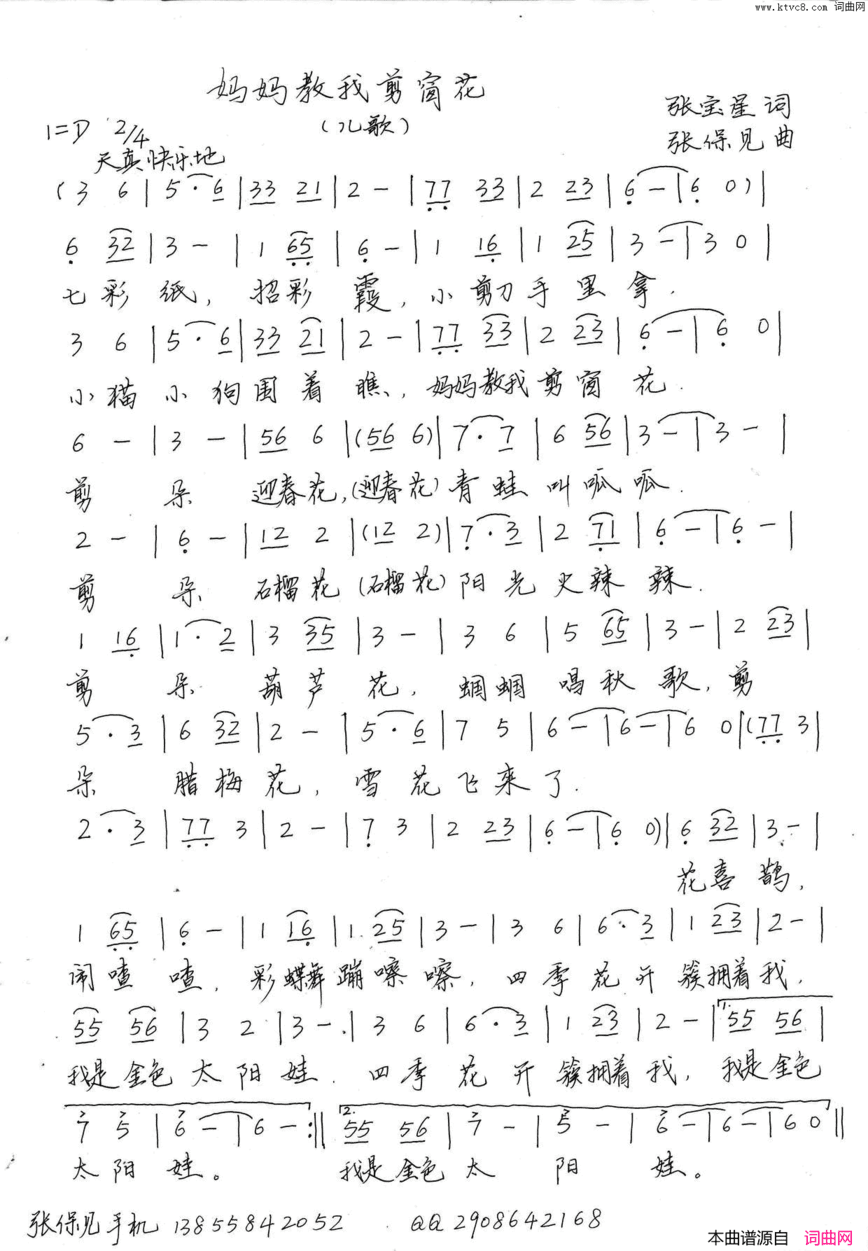 www.ktvc8.com 词曲网
妈妈教我剪窗花
(儿歌)
张宝星词
张保见曲
1=D 2/4
天真快乐地
(3 6|5·6|33 21|2-|77 33|2 23|6-|6 0)|
6 32|3-|1 65|6-|1 16|1 25|3-|3 0|
七彩纸，招彩霞，小剪刀手里拿.
3 6|5·6|33 21|2-|77 33|2 23|6-|6 0|
小猫小狗围着瞧，妈妈教我剪窗花.
6-|3-|56 6|(56 6)|7·7|6 56|3-|3-|
剪朵迎春花,(迎春花)青蛙叫呱呱.
2-|6-|12 2|(12 2)|7·3|2 71|6-|6-|
剪朵石榴花(石榴花)阳光火辣辣.
1 16|1·2|3 35|3-|3 6|5 65|3-|2 23|
剪朵葫芦花，蝈蝈唱秋歌,剪
5·3|6 32|2-|5·6|7 5|6-|6-|6 0|(77 3|
朵腊梅花，雪花飞来了.
2·3|77 3|2-|7 3|2 23|6-|6 0)|6 32|3-|
花喜鹊，
1 65|6-|1 16|1.25|3-|3 6|6·3|1 23|2-|
闹喳喳，彩蝶舞蹦嚓嚓，四季花开簇拥着我，
55 56|3 2|3-.|3 6|6·3|1 23|2-|1.55 56|
我是金色太阳娃.四季花开簇拥着我，我是金色
7 5|6-|6-:‖2.55 56|7-|5-|6-|6-|60‖
太阳娃。我是金色太阳娃。
张保见手机 13855842052 . QQ2908642168
本曲谱源自 词曲网